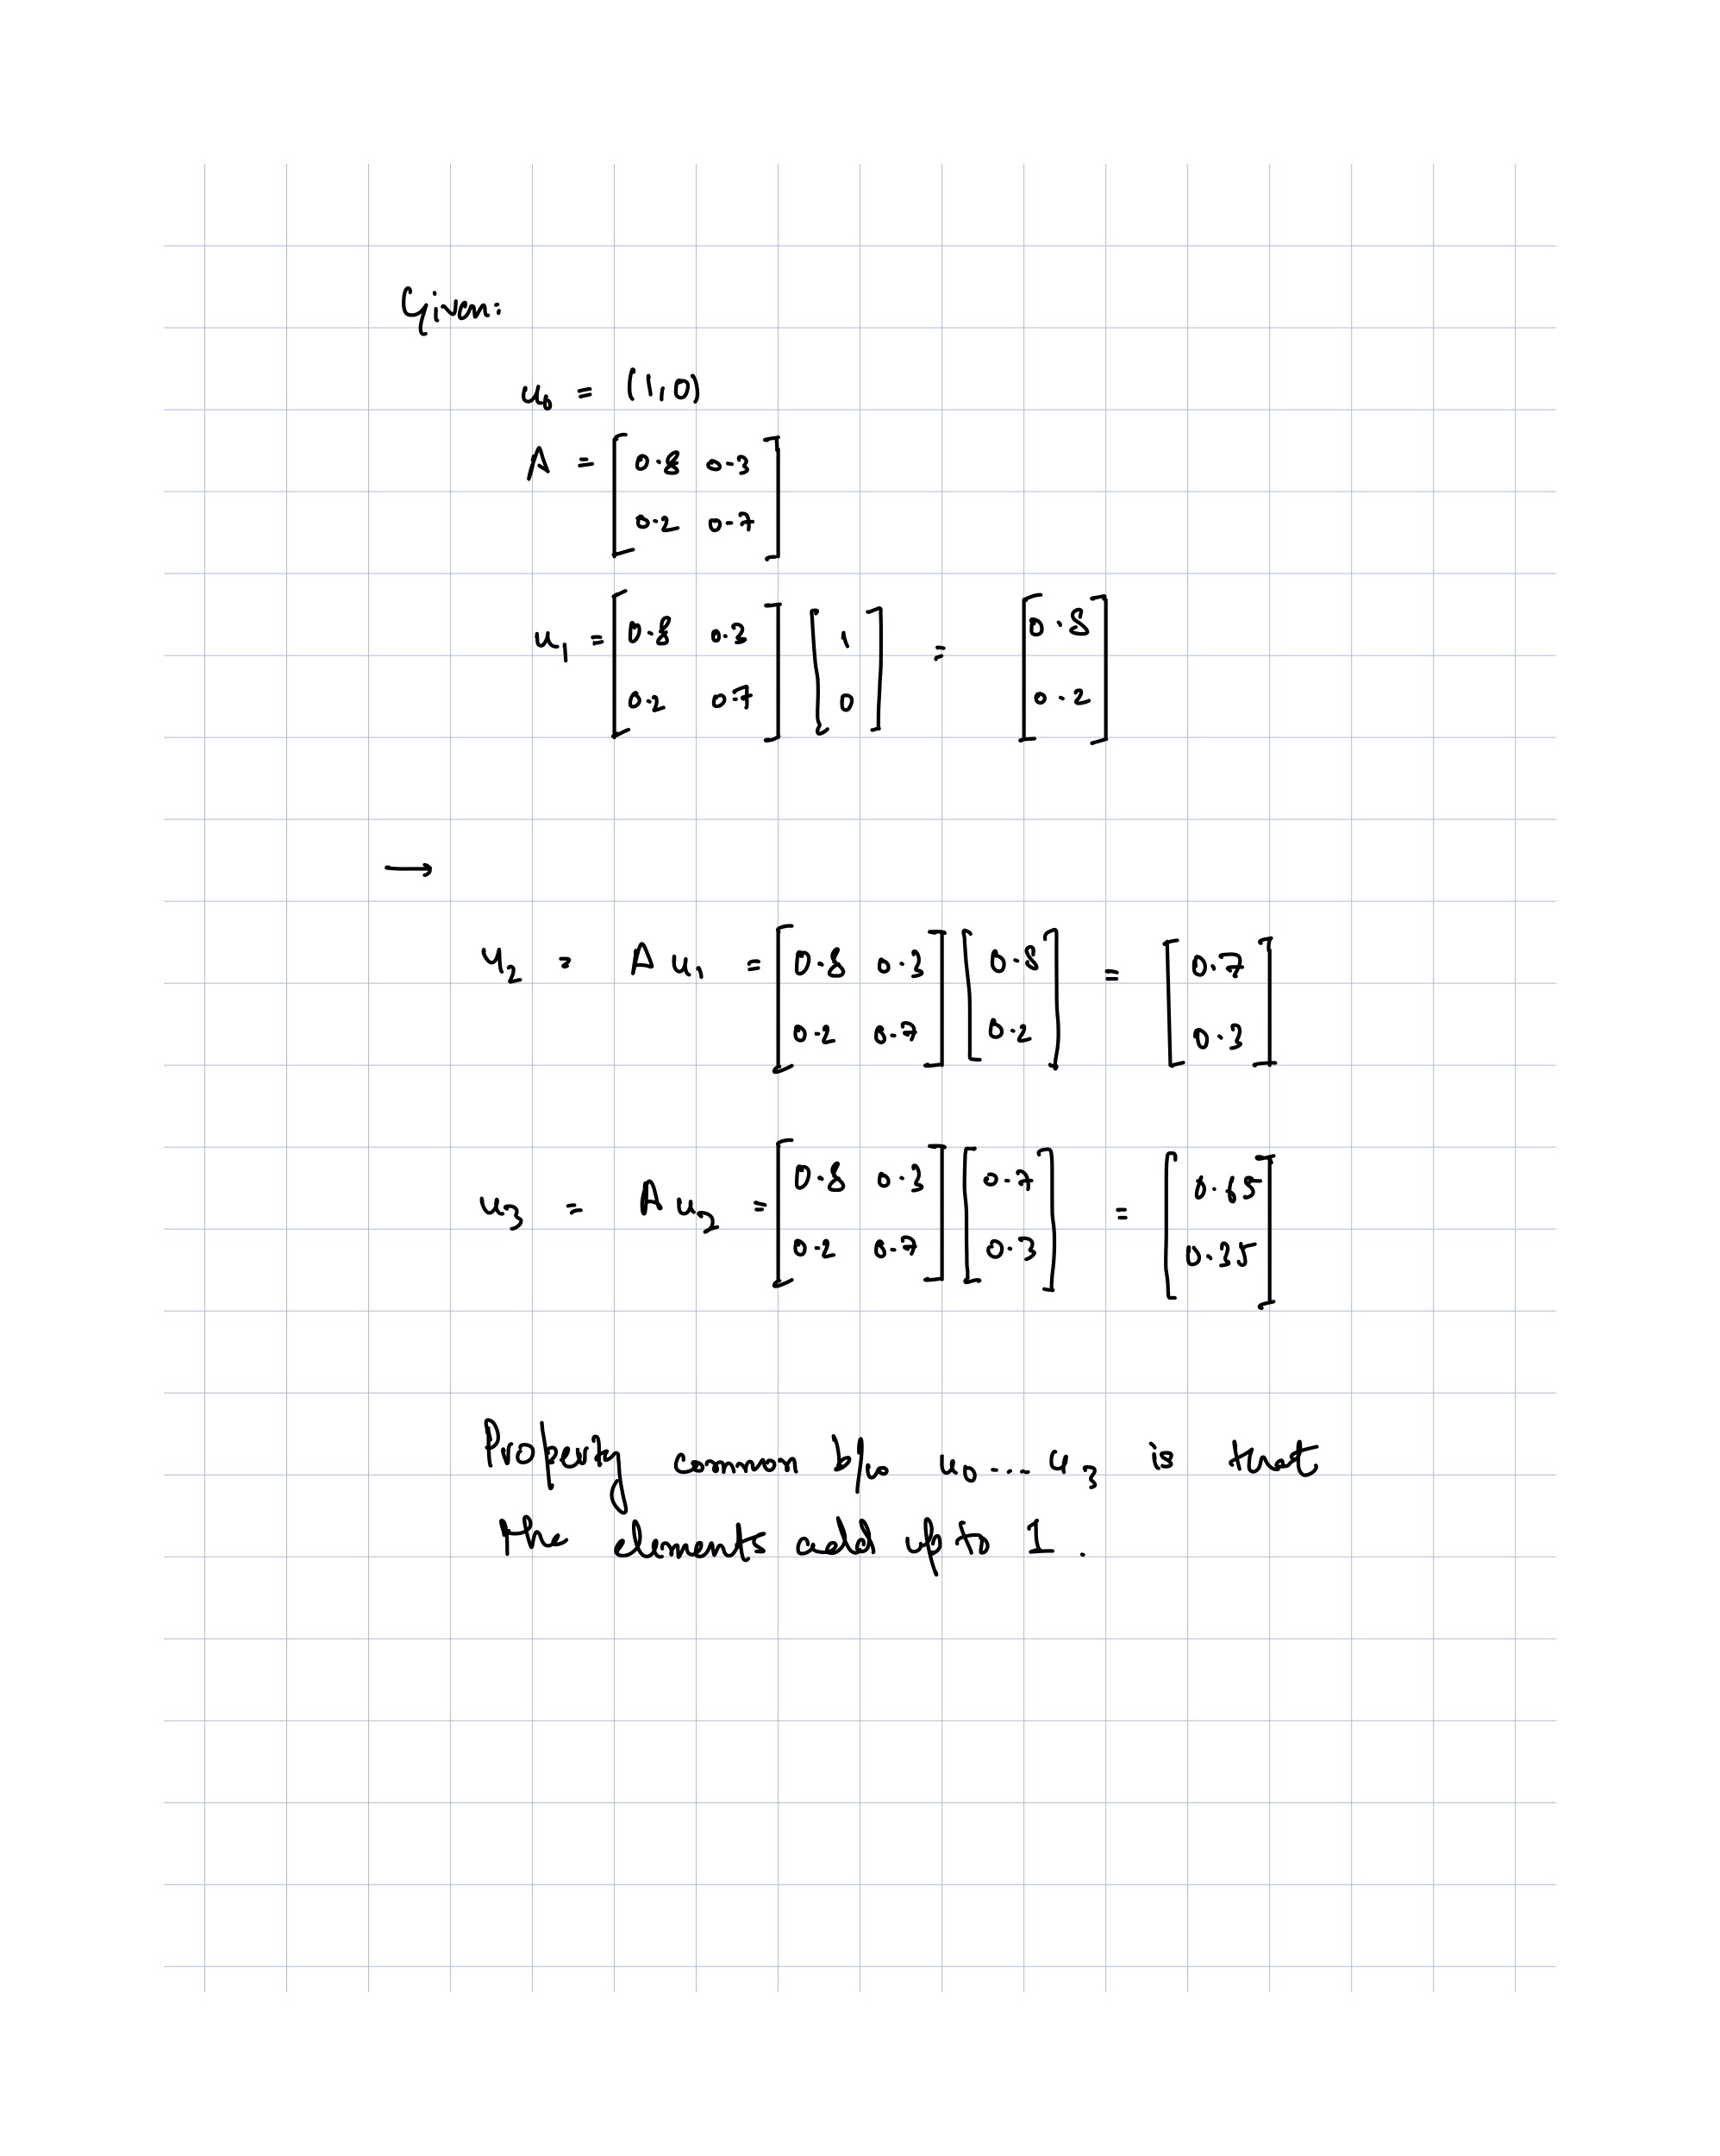 Given:
u₀ = (1,0)
A = [0.8 0.3
0.2 0.7]
u₁ = [0.8 0.3 [1 = [0.8
0.2 0.7] 0] 0.2]
→
u₂ = A u₁ = [0.8 0.3 [0.8 = [0.7
0.2 0.7] 0.2] 0.3]
u₃ = A u₂ = [0.8 0.3 [0.7 = [0.65
0.2 0.7] 0.3] 0.35]
Property common b/w u₀ ... u₃ is that
the elements add up to 1.